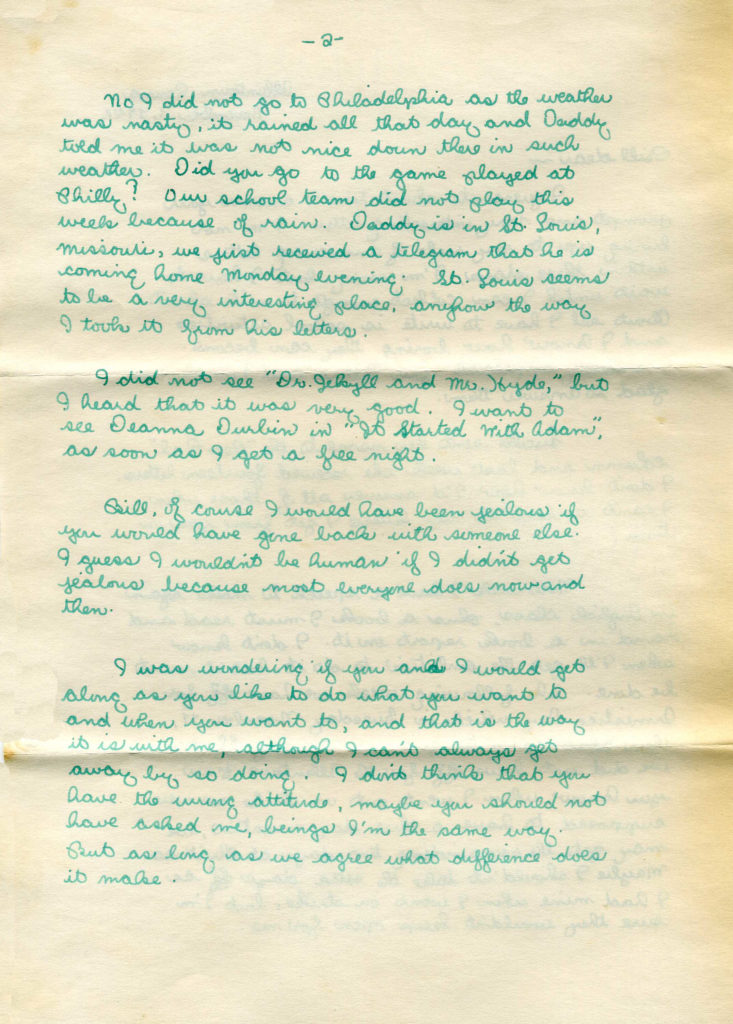 -2-
No I did not go to Philadelphia as the weather
was nasty, it rained all that day and Daddy
told me it was not nice down there in such
weather. Did you go to the game played at
Philly? Our school team did not play this
week because of rain. Daddy is in St. Louis,
Missouri, we just received a telegram that he is
coming home Monday evening. St. Louis seems
to be a very interesting place, anyhow the way
I took it from his letters.
I did not see "Dr. Jekyll and Mr. Hyde," but
I heard that it was very good. I want to
see Deanna Durbin in "It Started With Adam",
as soon as I get a free night.
Bill, of course I would have been jealous if
you would have gone back with someone else.
I guess I wouldn't be human if I didn't get
jealous because most everyone does now and
then.
I was wondering if you and I would get
along as you like to do what you want to
and when you want to, and that is the way
it is with me, although I can't always get
away by so doing. I don't think that you
have the wrong attitude, maybe you should not
have asked me, beings I'm the same way.
But as long as we agree what difference does
it make.